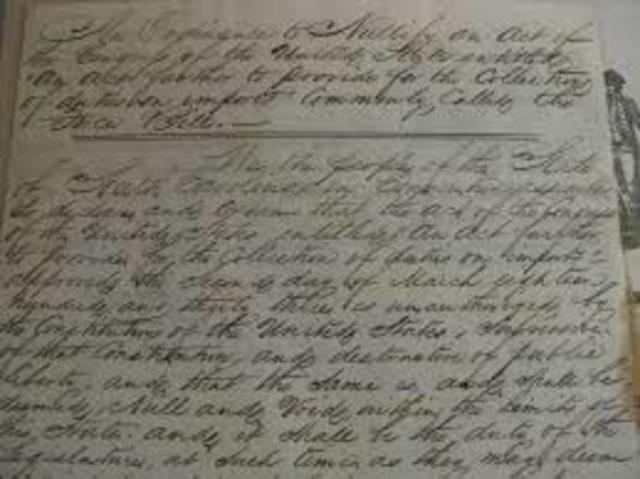 An Ordinance to Nullify an Act of
the Congress of the United States entitled
An Act further to provide for the Collection
of duties on imports Commonly Called the
Force Bill.—
We, the people of the State
of South Carolina in Convention assembled
do declare and Ordain that the act of the Congress
of the United States entitled An Act further
to provide for the Collection of duties on imports
approved the second day of March eighteen
hundred and thirty three is unauthorized by
the Constitution of the United States, Subversive
of that Constitution, and destructive of public
liberty, and that the same is and shall be
deemed Null and Void within the limits of
this State. and it shall be the duty of the
Legislature, at such time as they may deem